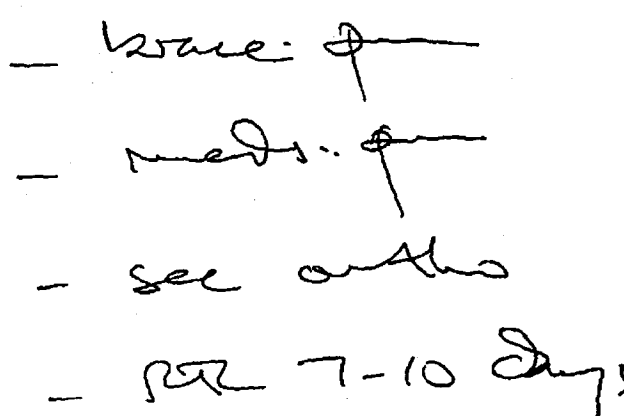 - brace: ϕ
- meds: ϕ
- see ortho
- RTC 7-10 days